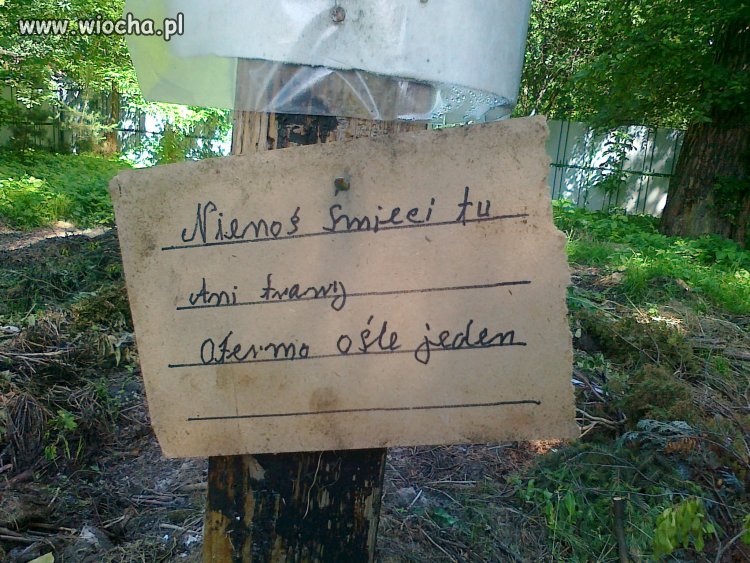 www.wiocha.pl
Nienoś śmieci tu
Ani trawy
Ofermo ośle jeden